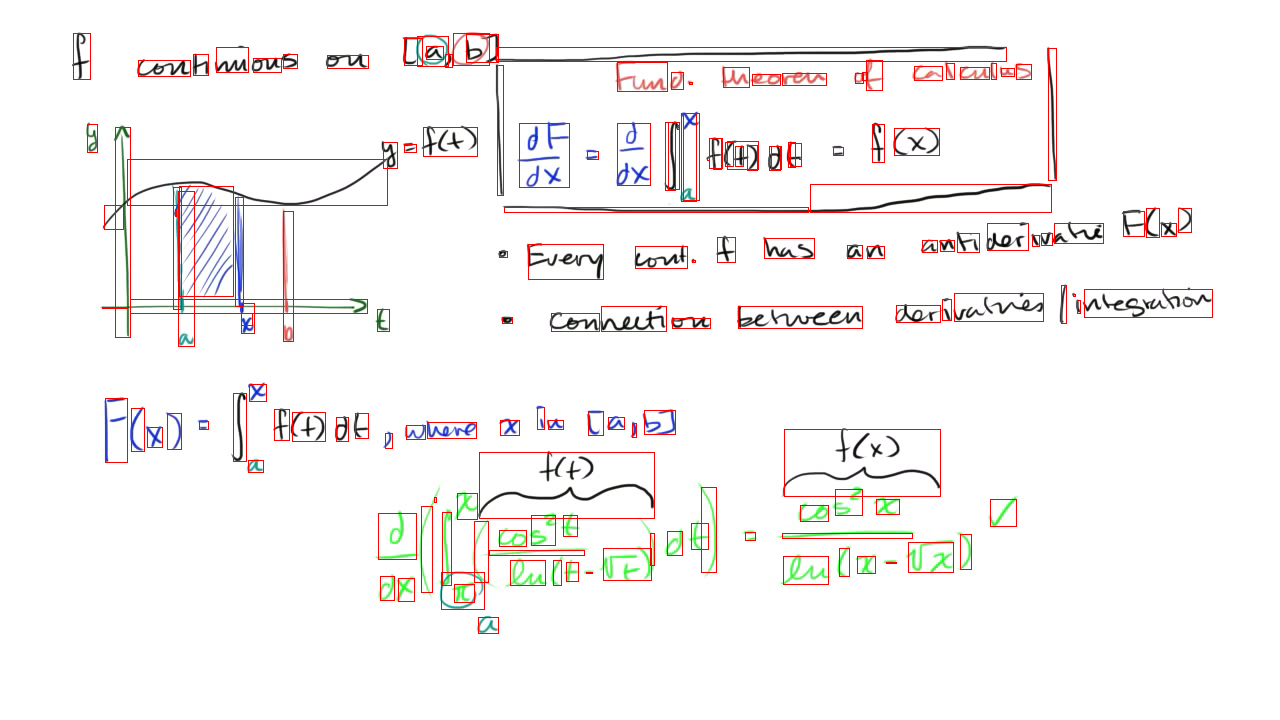 f continuous on [a,b]
Fund. theorem of calculus
y
y = f(t)
dF/dx = d/dx ∫_a^x f(t) dt = f(x)
• Every cont. f has an antiderivative F(x)
• connection between derivatives / integration
a x b t
F(x) = ∫_a^x f(t) dt, where x in [a,b]
f(t) f(x)
d/dx (∫_π^x (cos² t / ln(t - √t)) dt) = cos² x / ln(x - √x) ✓
a